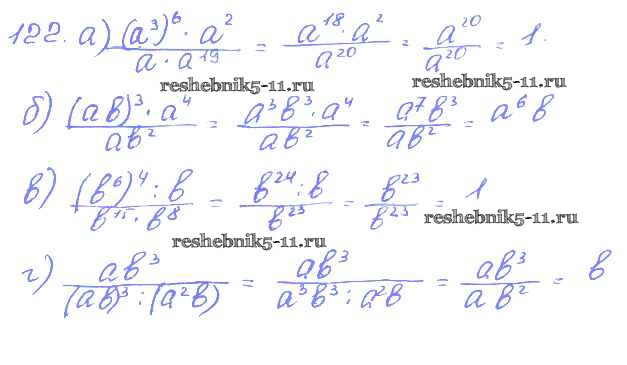 122. а) (a³)⁶ · a² / a · a¹⁹ = a¹⁸ · a² / a²⁰ = a²⁰ / a²⁰ = 1.
reshebnik5-11.ru reshebnik5-11.ru
б) (ab)³ · a⁴ / ab² = a³b³ · a⁴ / ab² = a⁷b³ / ab² = a⁶b
в) (b⁶)⁴ : b / b¹⁵ · b⁸ = b²⁴ : b / b²³ = b²³ / b²³ = 1
reshebnik5-11.ru
reshebnik5-11.ru
г) ab³ / (ab)³ : (a²b) = ab³ / a³b³ : a²b = ab³ / ab² = b